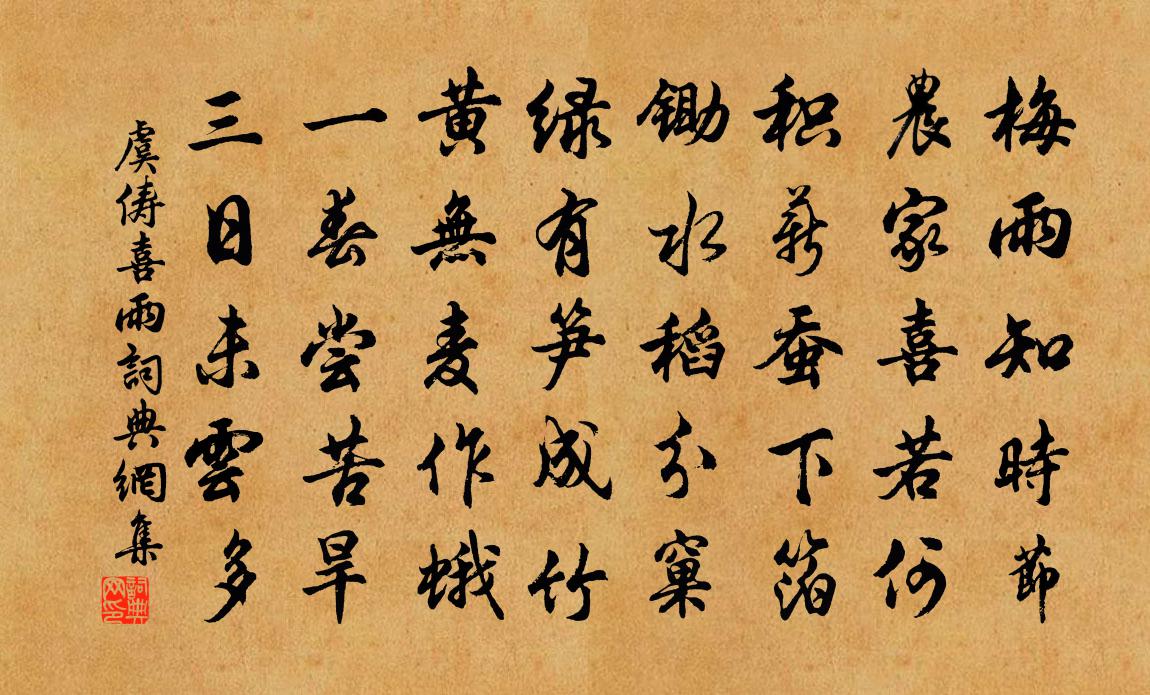 梅雨知時節
農家喜若何
积薪蚕下箔
锄水稻分窠
绿有笋成竹
黄無麦作蛾
一春尝苦旱
三日未雲多
虞俦喜雨詞典網集
詞典网印